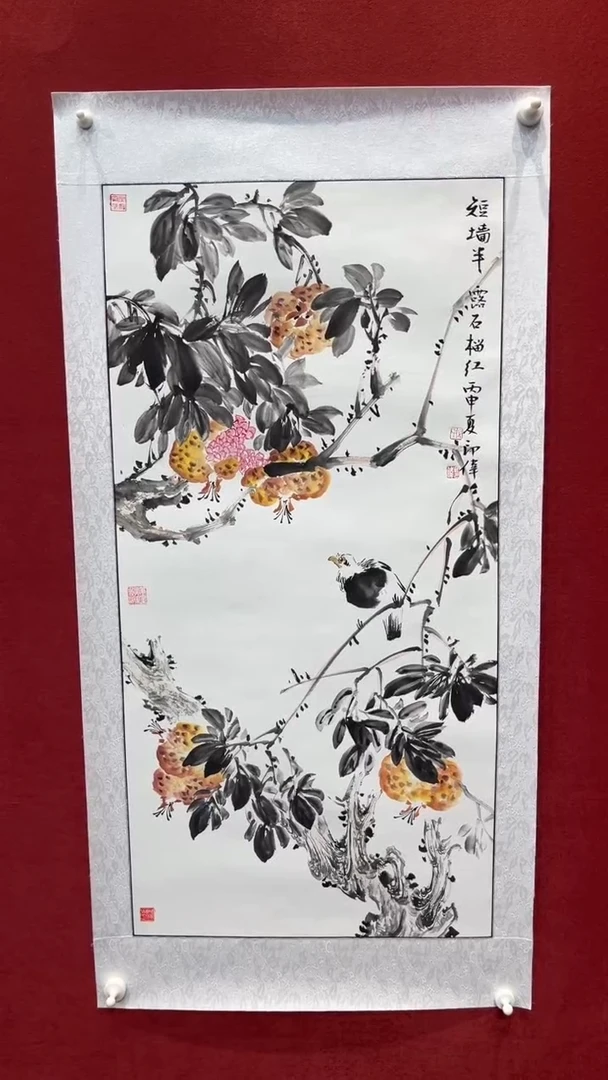 短墙半露石榴红丙申夏印伟